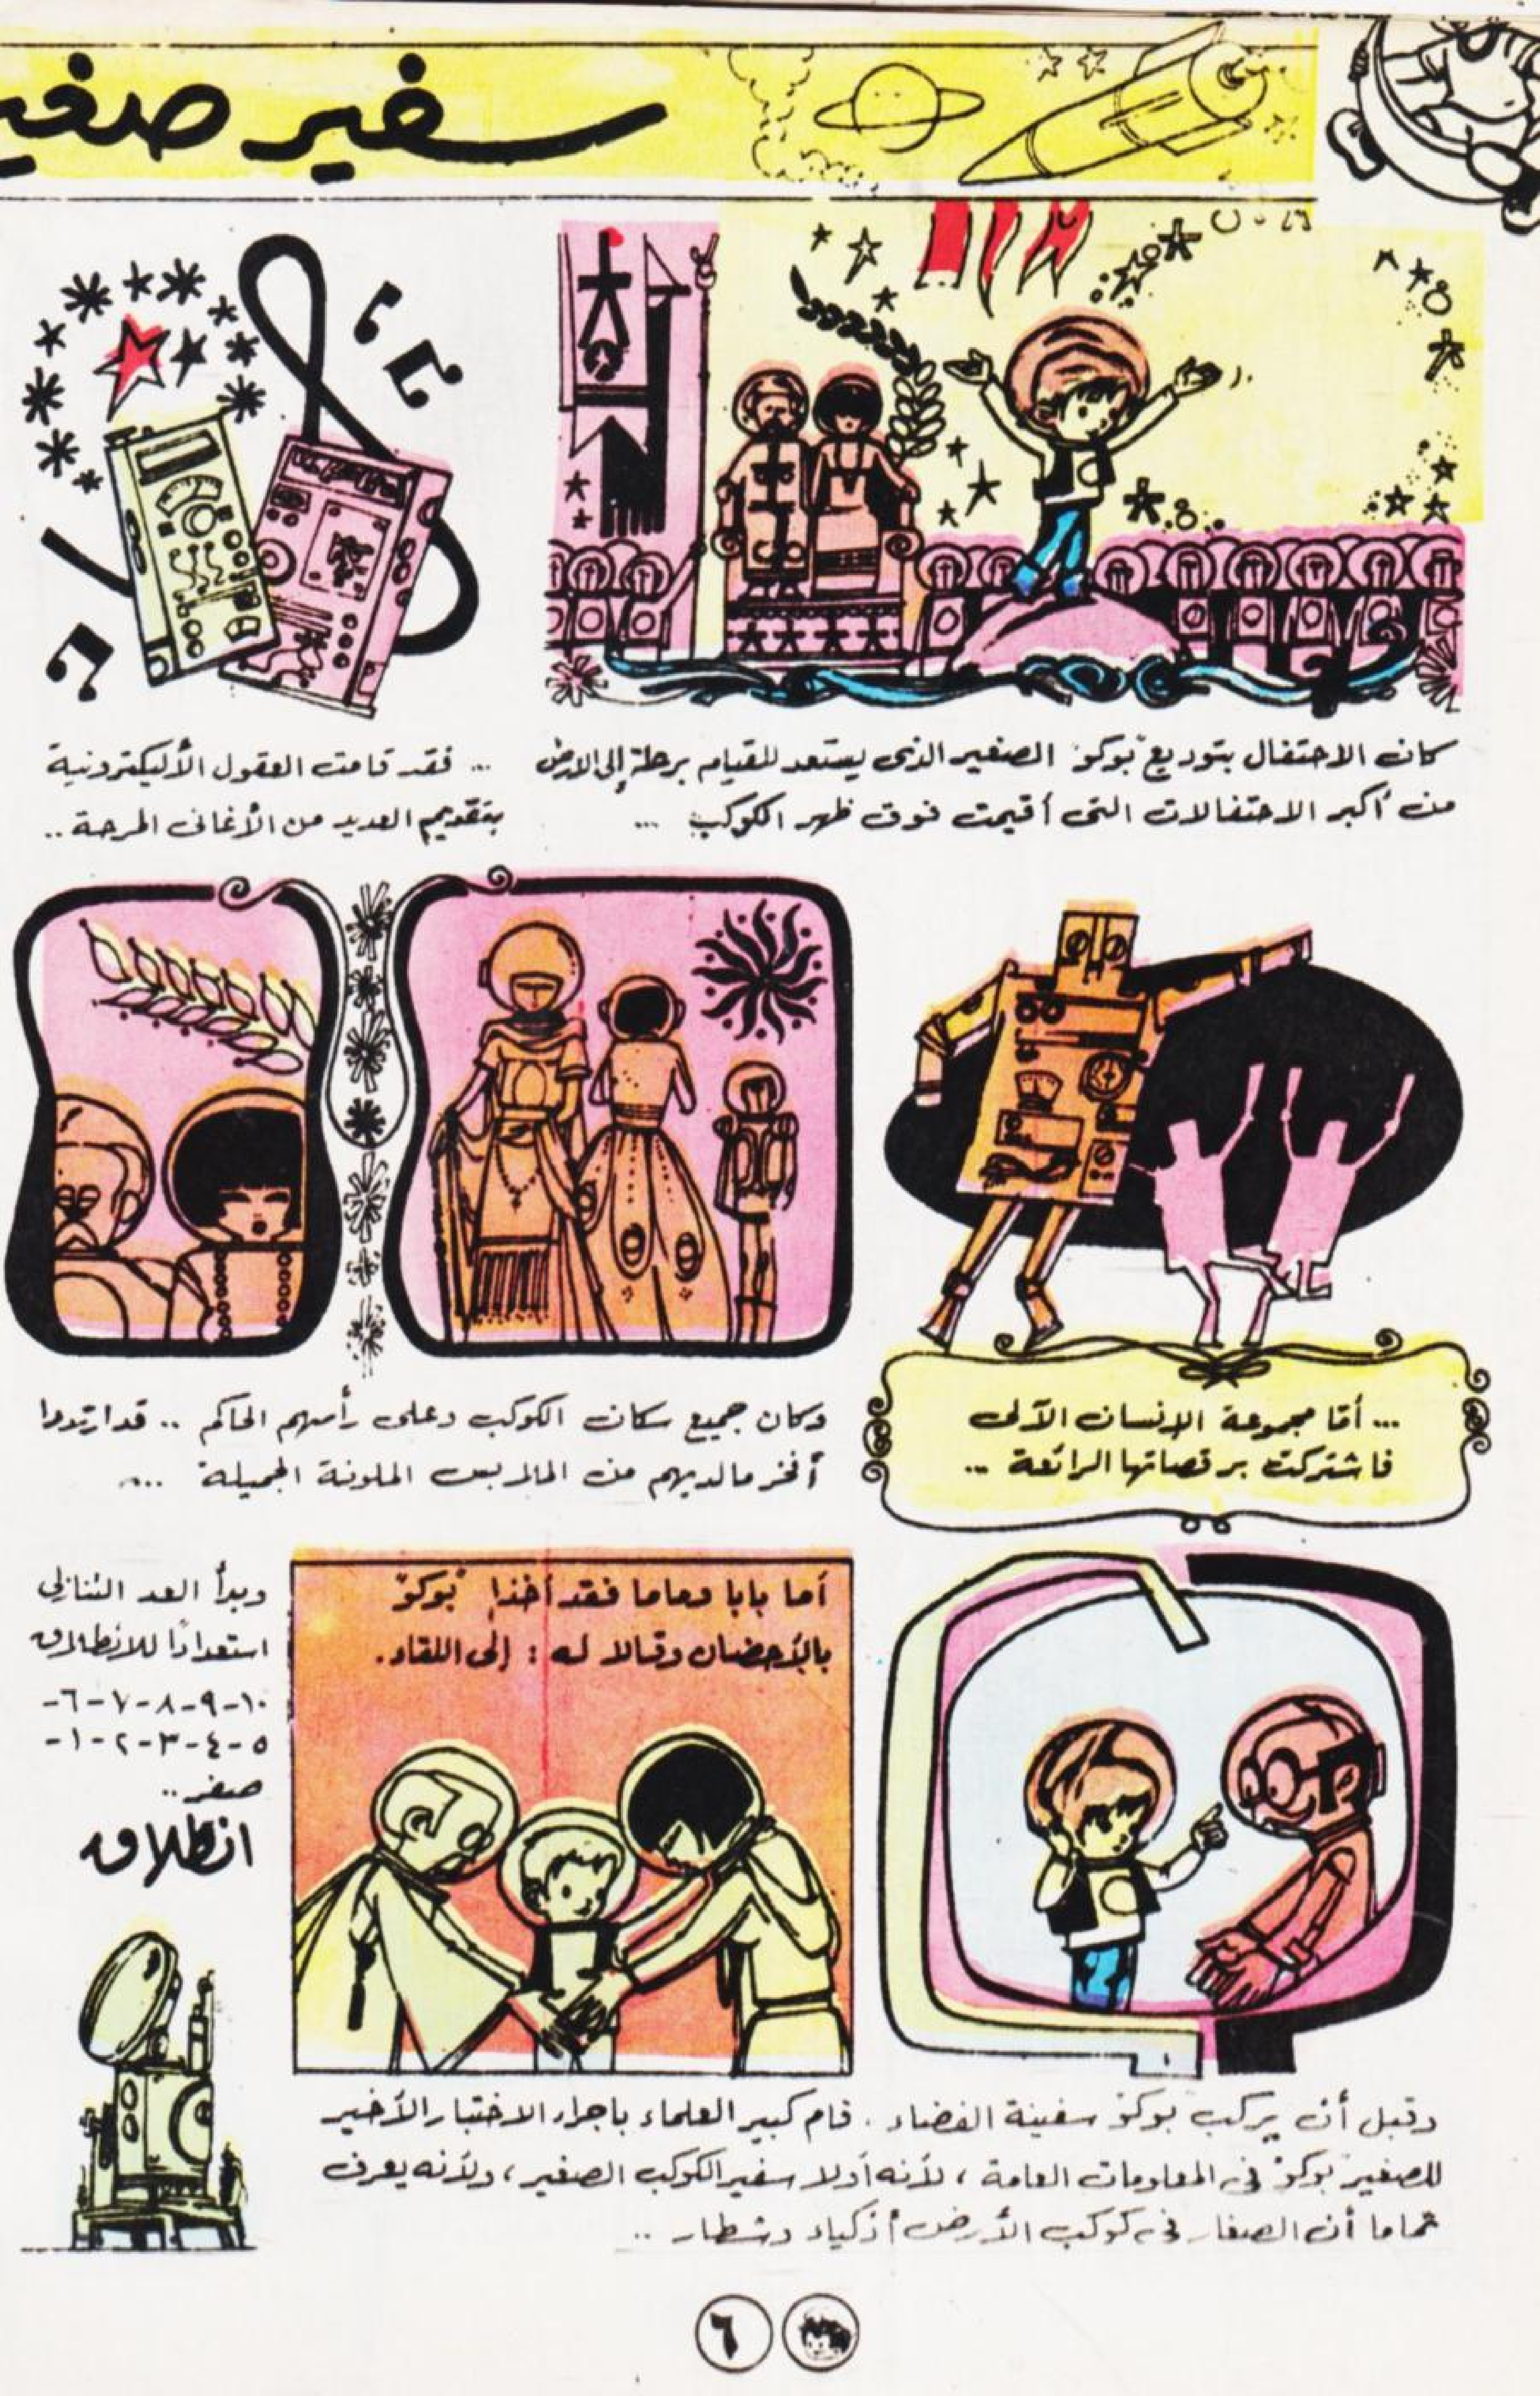 سفير صغير
كان الاحتفال بتوديع "بوكو" الصغير الذى يستعد للقيام برحلة إلى الأرض
من أكبر الاحتفالات التى أقيمت فوق ظهر الكوكب ...
... فقد قامت العقول الأليكترونية
بتقديم العديد من الأغانى المرحة ..
... أما مجموعة الإنسان الآلى
فاشتركت برقصاتها الرائعة ...
وكان جميع سكان الكوكب وعلى رأسهم الحاكم .. قد ارتدوا
أفخر مالديهم من الملابس الملونة الجميلة ...
وقبل أن يركب بوكو سفينة الفضاء . قام كبير العلماء باجراء الاختبار الأخير
للصغير "بوكو" فى المعلومات العامة ، لأنه أولا سفير الكوكب الصغير ، ولأنه يعرف
تماما أن الصغار فى كوكب الأرض أذكياء وشطار ..
أما بابا وماما فقد أخذا "بوكو"
بالأحضان وقالا له : إلى اللقاء .
وبدأ العد التنازلى
استعدادًا للانطلاق
١٠-٩-٨-٧-٦-
٥-٤-٣-٢-١-
صفر ..
انطلاق
٦